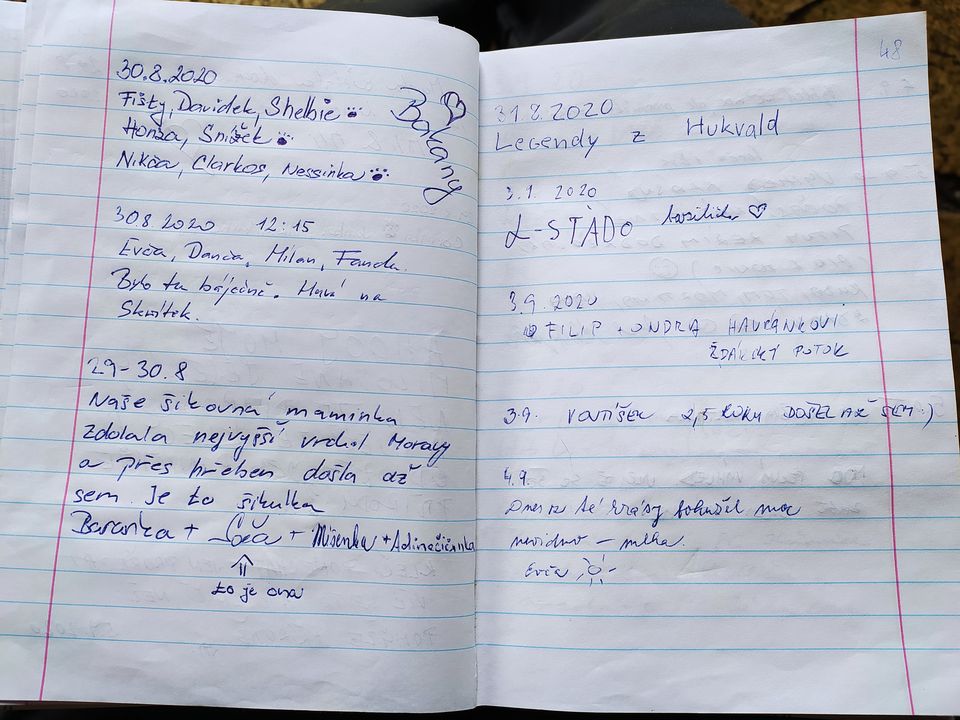 30.8.2020
Fišty, Davidek, Shelbie
Honza, Snížek
Nikča, Clarkos, Nessinka
Bakany
30.8.2020 12:15
Evča, Danča, Milan, Fanda.
Bylo tu báječně. Hurá na
Skřítek.
29-30.8
Naše šikovná maminka
zdolala nejvyšší vrchol Moravy
a přes hřeben došla až
sem. Je to šikulka
Baranka + + Míšenka + Adinečičanka
to je ona
48
31.8.2020
Legendy z Hukvald
3.1. 2020
L-STÁDO
3.9. 2020
FILIP + ONDRA HAVRÁNKOVI
ŽDÁRSKÝ POTOK
3.9. VOJTÍŠEK 2,5 ROKU DOŠEL AŽ SEM :)
4.9.
Dnes z té krásy bohužel moc
nevidno - mlha.
Evča